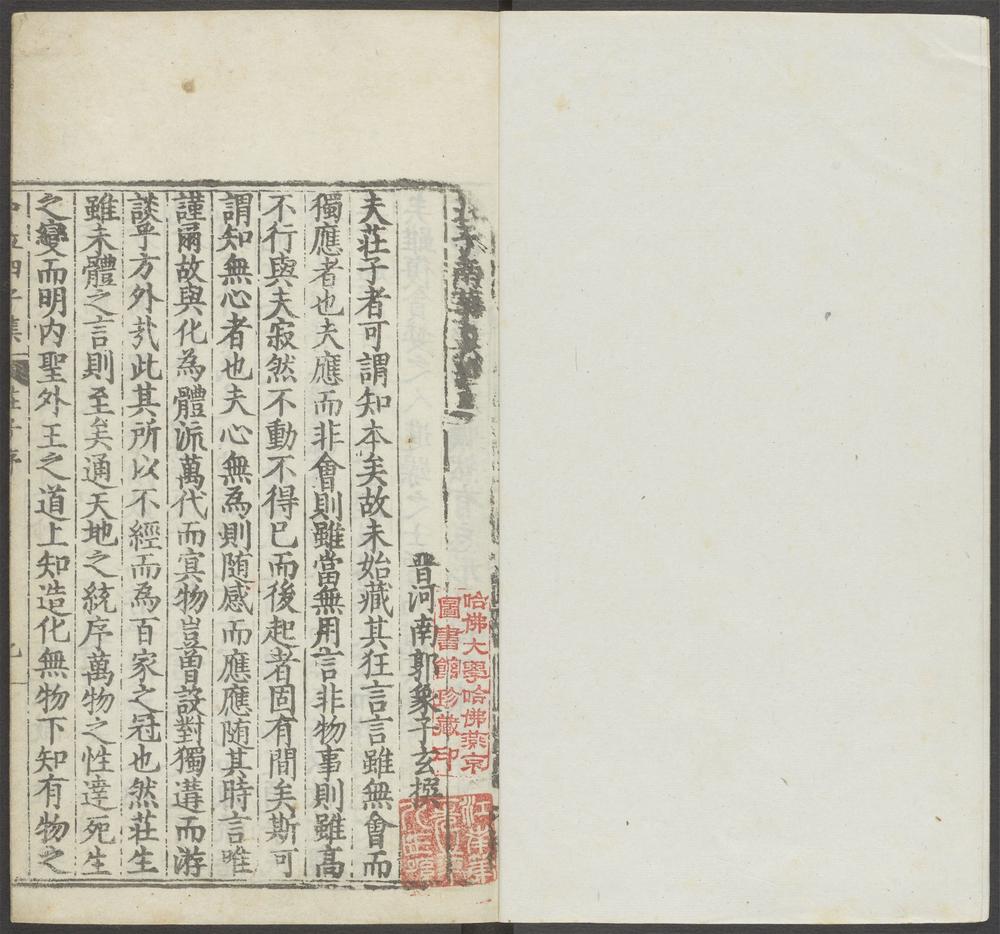 子南華真經序
晋河南郭象子玄撰
夫莊子者可謂知本矣故未始藏其狂言言雖無會而
獨應者也夫應而非會則雖當無用言非物事則雖高
不行與夫寂然不動不得已而後起者固有間矣斯可
謂知無心者也夫心無為則随感而應應随其時言唯
謹爾故與化為體流萬代而冥物豈曽設對獨遘而游
談乎方外㢤此其所以不經而為百家之冠也然莊生
雖未體之言則至矣通天地之統序萬物之性達死生
之變而明内聖外王之道上知造化無物下知有物之
四子集 莊子序
哈佛大學哈佛燕京
圖書館珍藏印